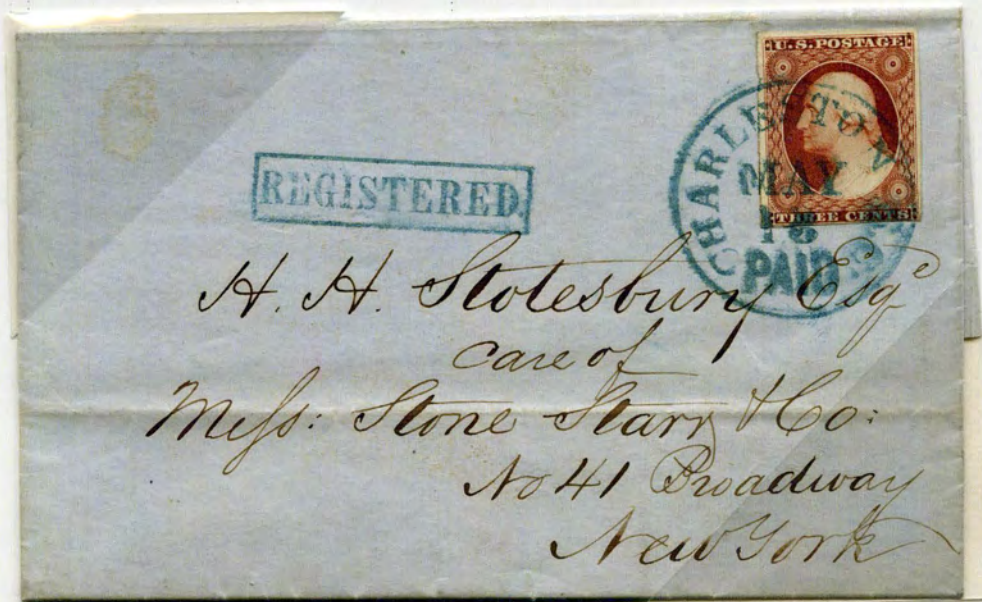 U.S. POSTAGE
THREE CENTS
CHARLESTON
MAY
18
PAID
REGISTERED
H. H. Stotesbury Esqe
care of
Messs: Stone Starr & Co:
No 41 Broadway
New York